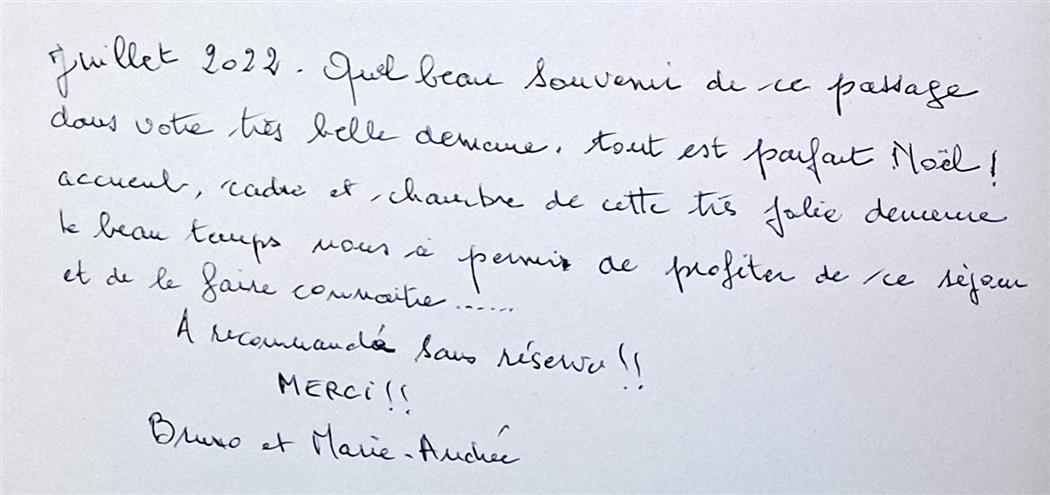 Juillet 2022. Quel beau souvenir de ce passage
dans votre très belle demeure. tout est parfait Noël !
accueil, cadre et chambre de cette très jolie demeure
le beau temps nous à permis de profiter de ce séjour
et de le faire connaitre......
A recommandé sans réserve !!
MERCi !!
Bruno et Marie-Andrée